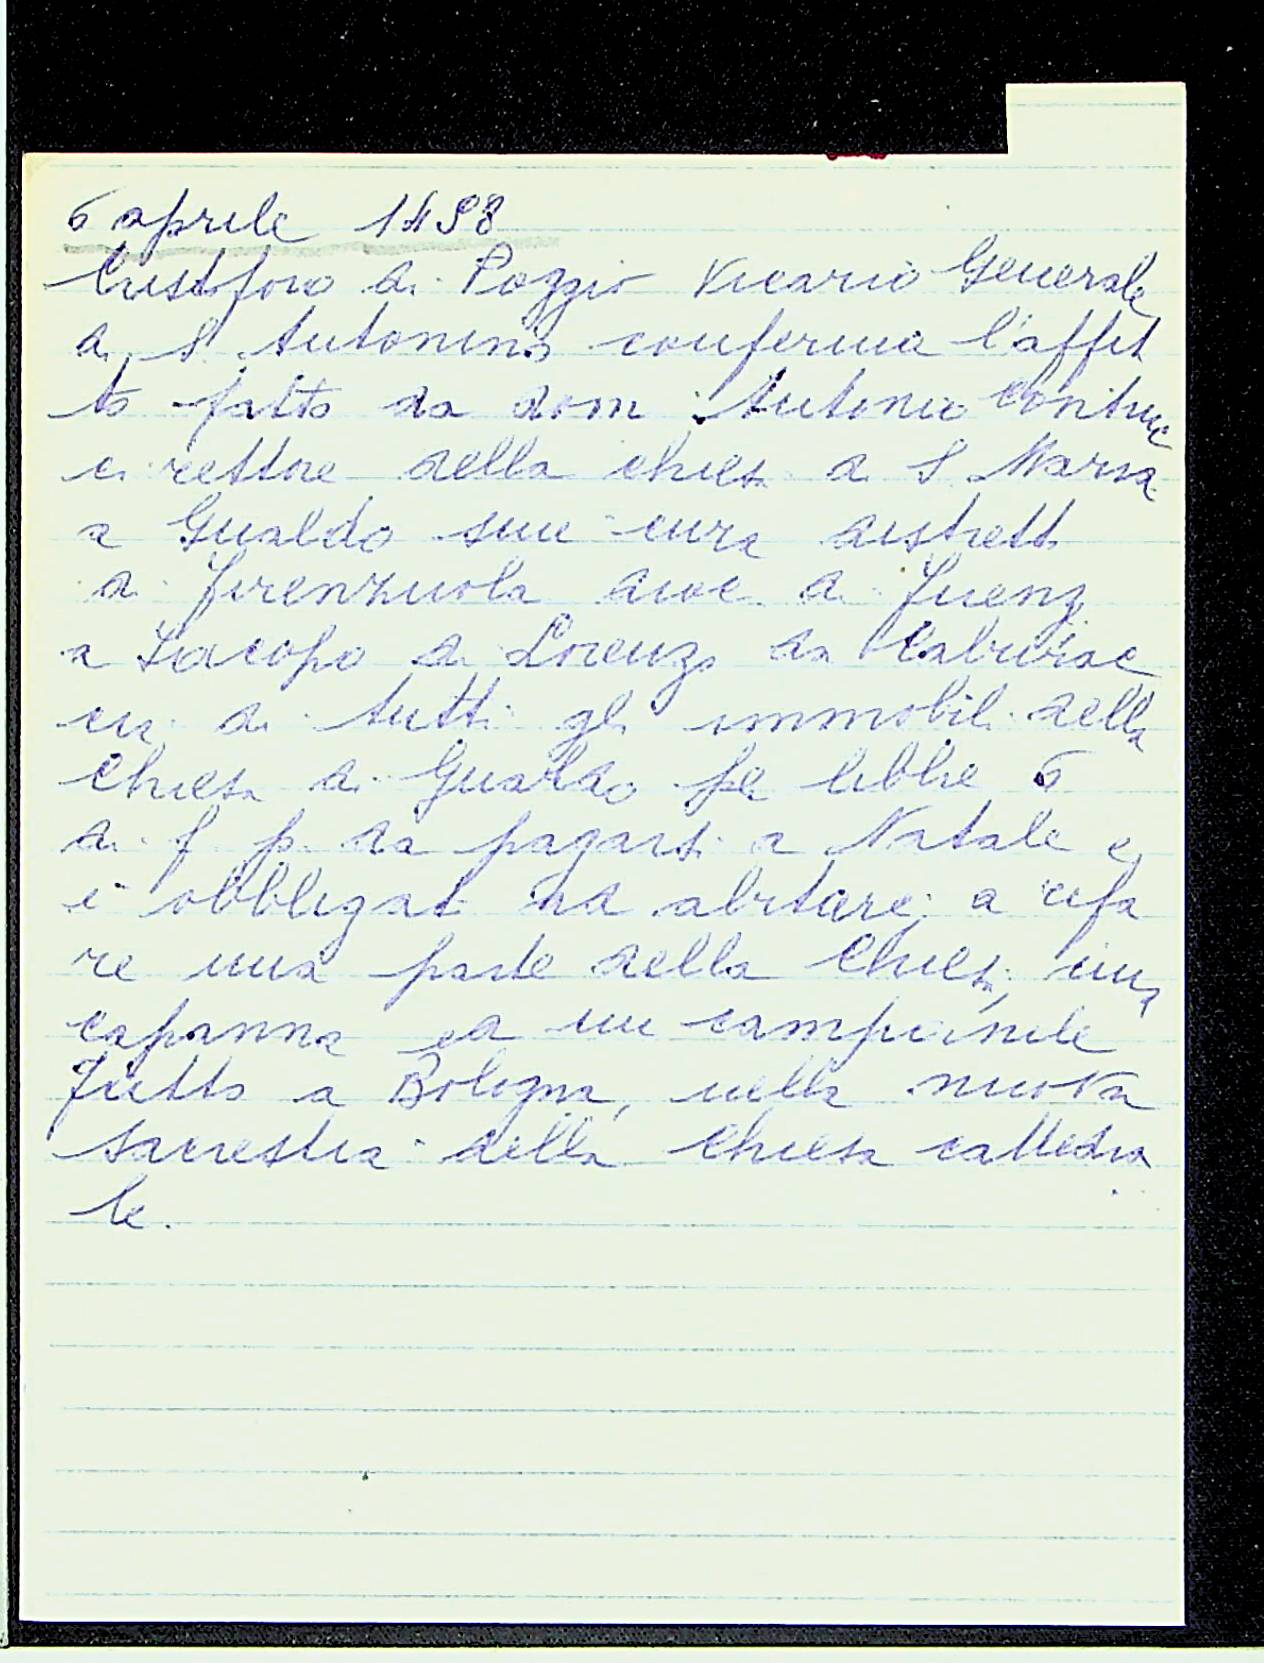 6 aprile 1498
Cristoforo di Poggio Vicario Generale
di S. Antonino conferma l'affit
to fatto da dom Antonio Contruc
ci rettore della chiesa di S Maria
a Gualdo sine cura distretto
di Firenzuola dioc. di Firenz
a Iacopo di Lorenzo da
di tutti gli immobili della
Chiesa di Gualdo per libbre 6
di f p. da pagarsi a Natale e
è obbligat ad abitare; a rifa
re una parte della Chiesa, una
capanna ed un campanile
Fatto a Bologna, nella nuova
sacrestia della Chiesa cattedra
le.